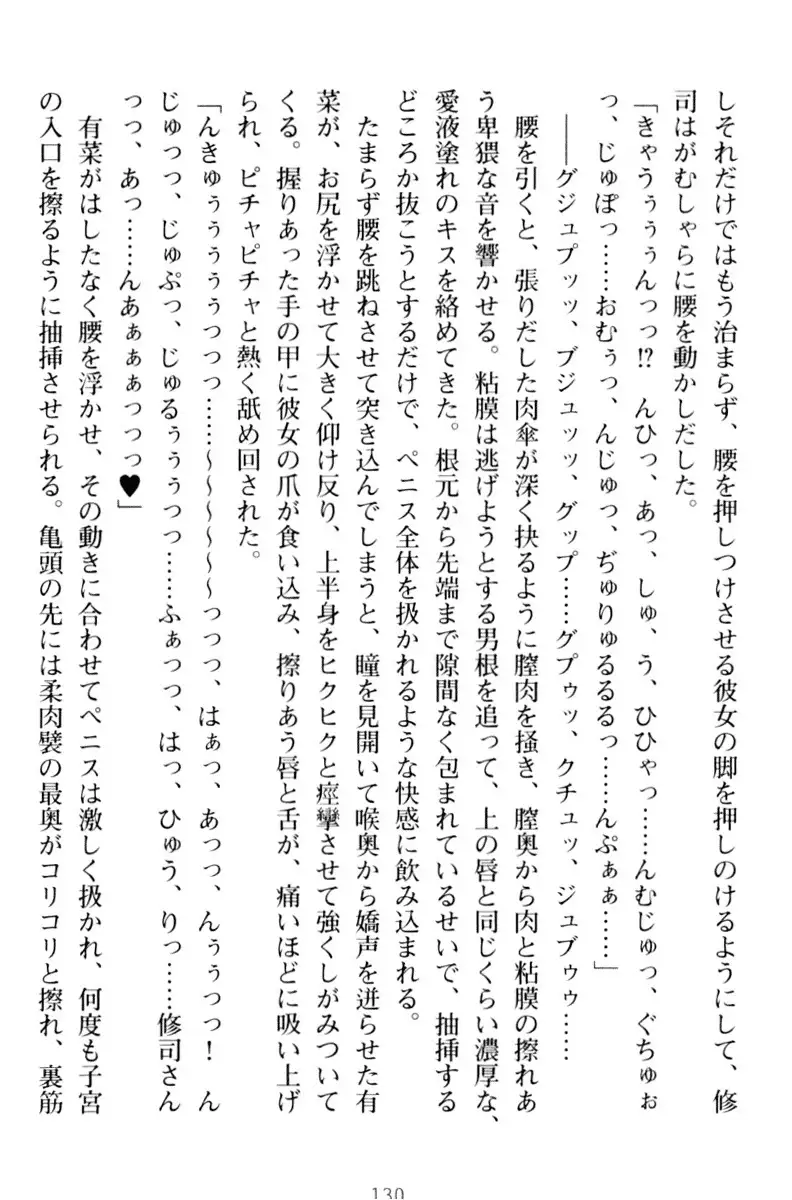 しそれだけではもう治まらず、腰を押しつけさせる彼女の脚を押しのけるようにして、修
司はがむしゃらに腰を動かしだした。
「きゃうぅぅぅんっっ!? んひっ、あっ、しゅ、う、ひひゃっ……んむじゅっ、ぐちゅぉ
っ、じゅぽっ……おむぅっ、んじゅっ、ぢゅりゅるるるっ……んぷぁぁ……」
――グジュプッッ、ブジュッッ、グップ……グプゥッ、クチュッ、ジュブゥゥ……
腰を引くと、張りだした肉傘が深く抉るように膣肉を掻き、膣奥から肉と粘膜の擦れあ
う卑猥な音を響かせる。粘膜は逃げようとする男根を追って、上の唇と同じくらい濃厚な、
愛液塗れのキスを絡めてきた。根元から先端まで隙間なく包まれているせいで、抽挿する
どころか抜こうとするだけで、ペニス全体を扱かれるような快感に飲み込まれる。
たまらず腰を跳ねさせて突き込んでしまうと、瞳を見開いて喉奥から嬌声を迸らせた有
菜が、お尻を浮かせて大きく仰け反り、上半身をヒクヒクと痙攣させて強くしがみついて
くる。握りあった手の甲に彼女の爪が食い込み、擦りあう唇と舌が、痛いほどに吸い上げ
られ、ピチャピチャと熱く舐め回された。
「んきゅぅぅぅぅぅっっっ……～～～～～～っっっ、はぁっ、あっっ、んぅぅっっ! ん
じゅっっ、じゅぷっ、じゅるぅぅぅっっ……ふぁっっ、はっ、ひゅう、りっ……修司さん
っっ、あっ……んあぁぁぁっっっ♥」
有菜がはしたなく腰を浮かせ、その動きに合わせてペニスは激しく扱かれ、何度も子宮
の入口を擦るように抽挿させられる。亀頭の先には柔肉襞の最奥がコリコリと擦れ、裏筋
130